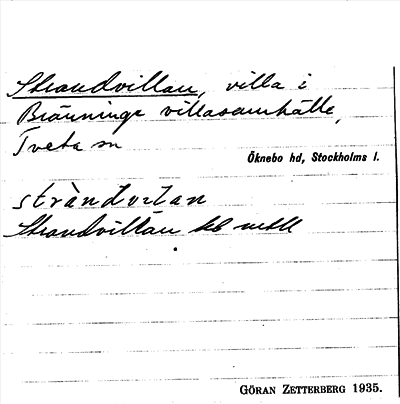 Strandvillan, villa i
Bränninge villasamhälle,
Tveta sn
Öknebo hd, Stockholms l.
stràndvilan
Strandvillan
GÖRAN ZETTERBERG 1935.